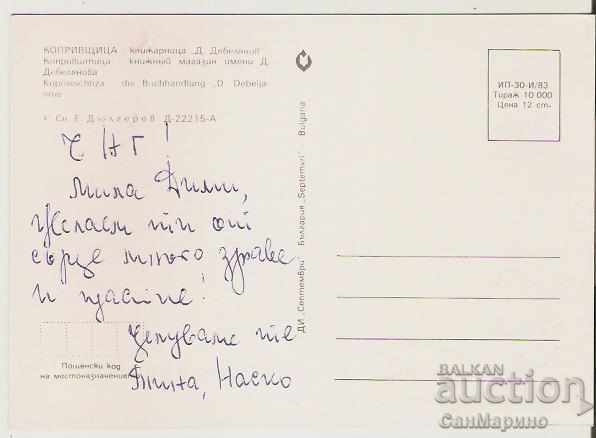 КОПРИВЩИЦА книжарница „Д. Дебелянов“
Копривштица книжный магазин имени Д.
Дебелянова
Koprivschtiza die Buchhandlung „D. Debelja-
nov“
Сн. Е. Дюлгеров Д-22215-А
Ч Н Г !
Мила Дими,
Желаем ти от
сърце много здраве
и щастие!
Целуваме те
Тина, Наско
Пощенски код
на местоназначение
ДИ „Септември“ България „Septemvri“ Bulgaria
ИП-30-И/83
Тираж 10 000
Цена 12 ст.
BALKAN
auction
СанМарино